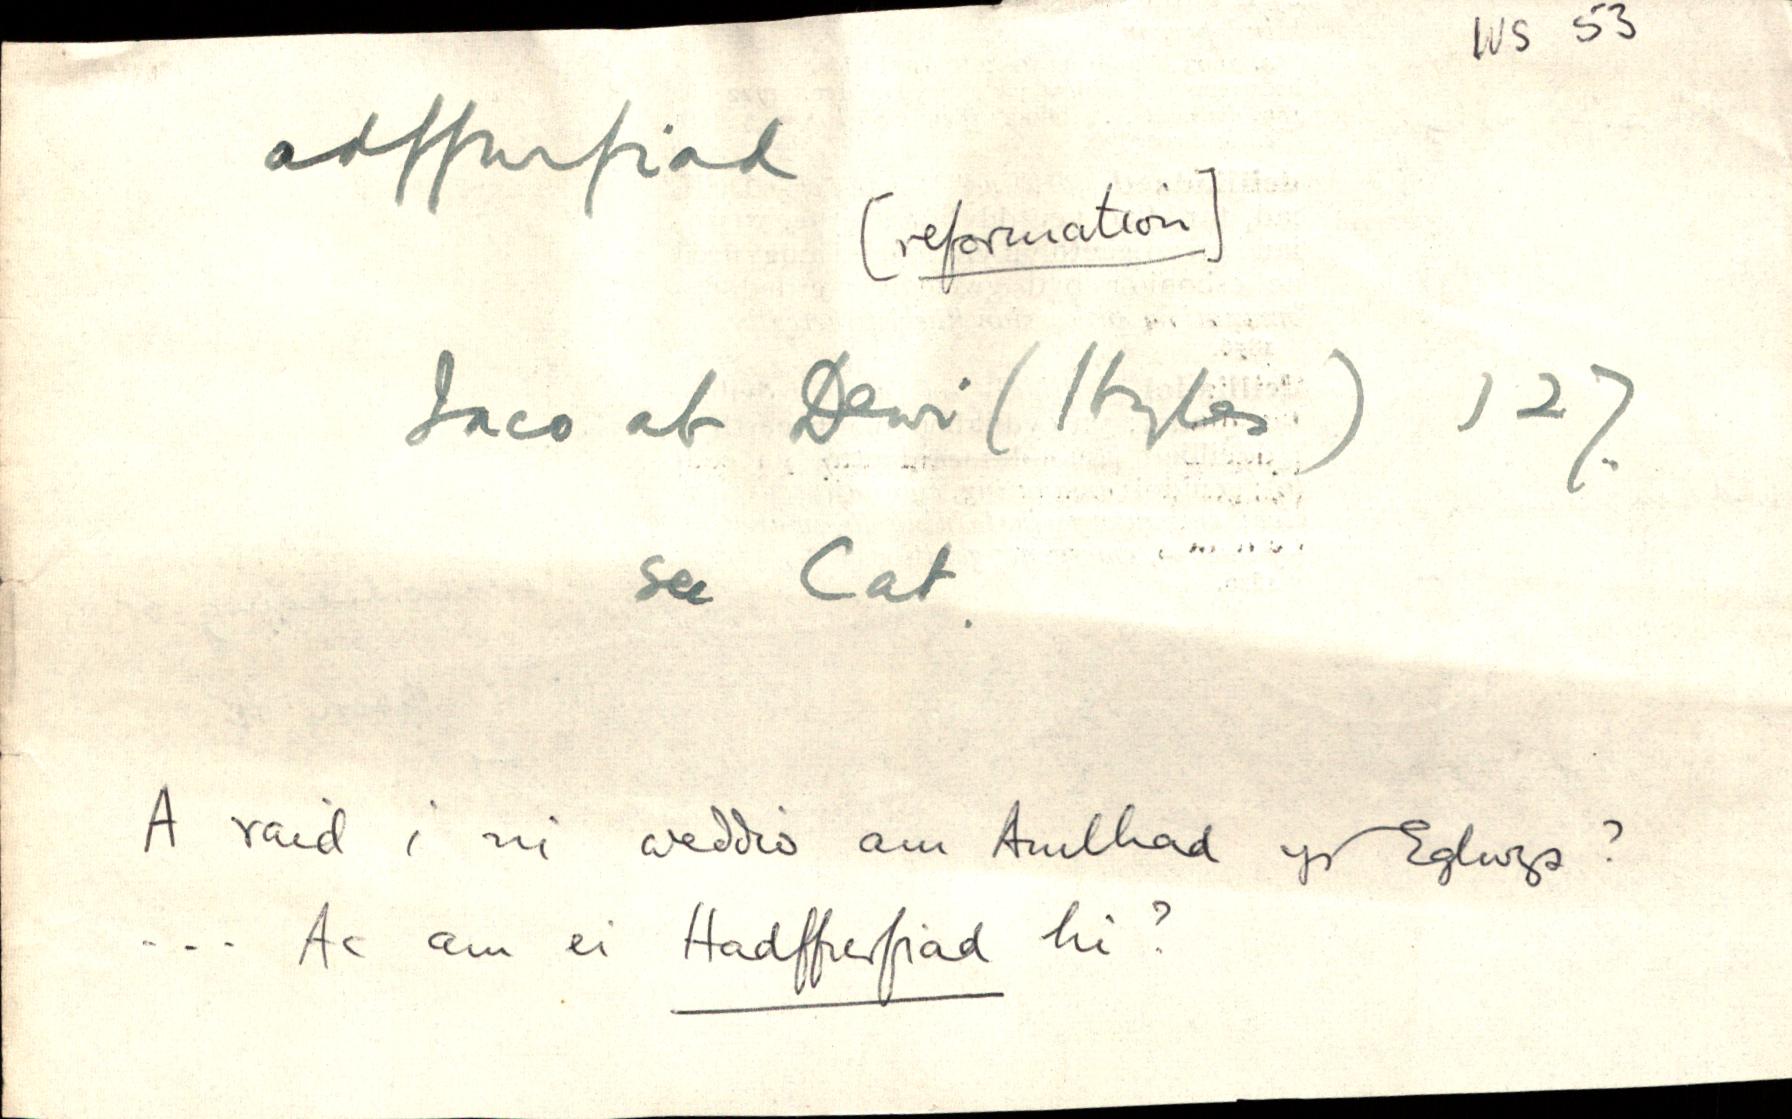 WS 53
adffurfiad
[reformation]
Iaco ab Dewi (Hyles) 127.
see Cat.
A raid i ni weddio am Amlhad yr Eglwys?
... Ac am ei Hadffurfiad hi?